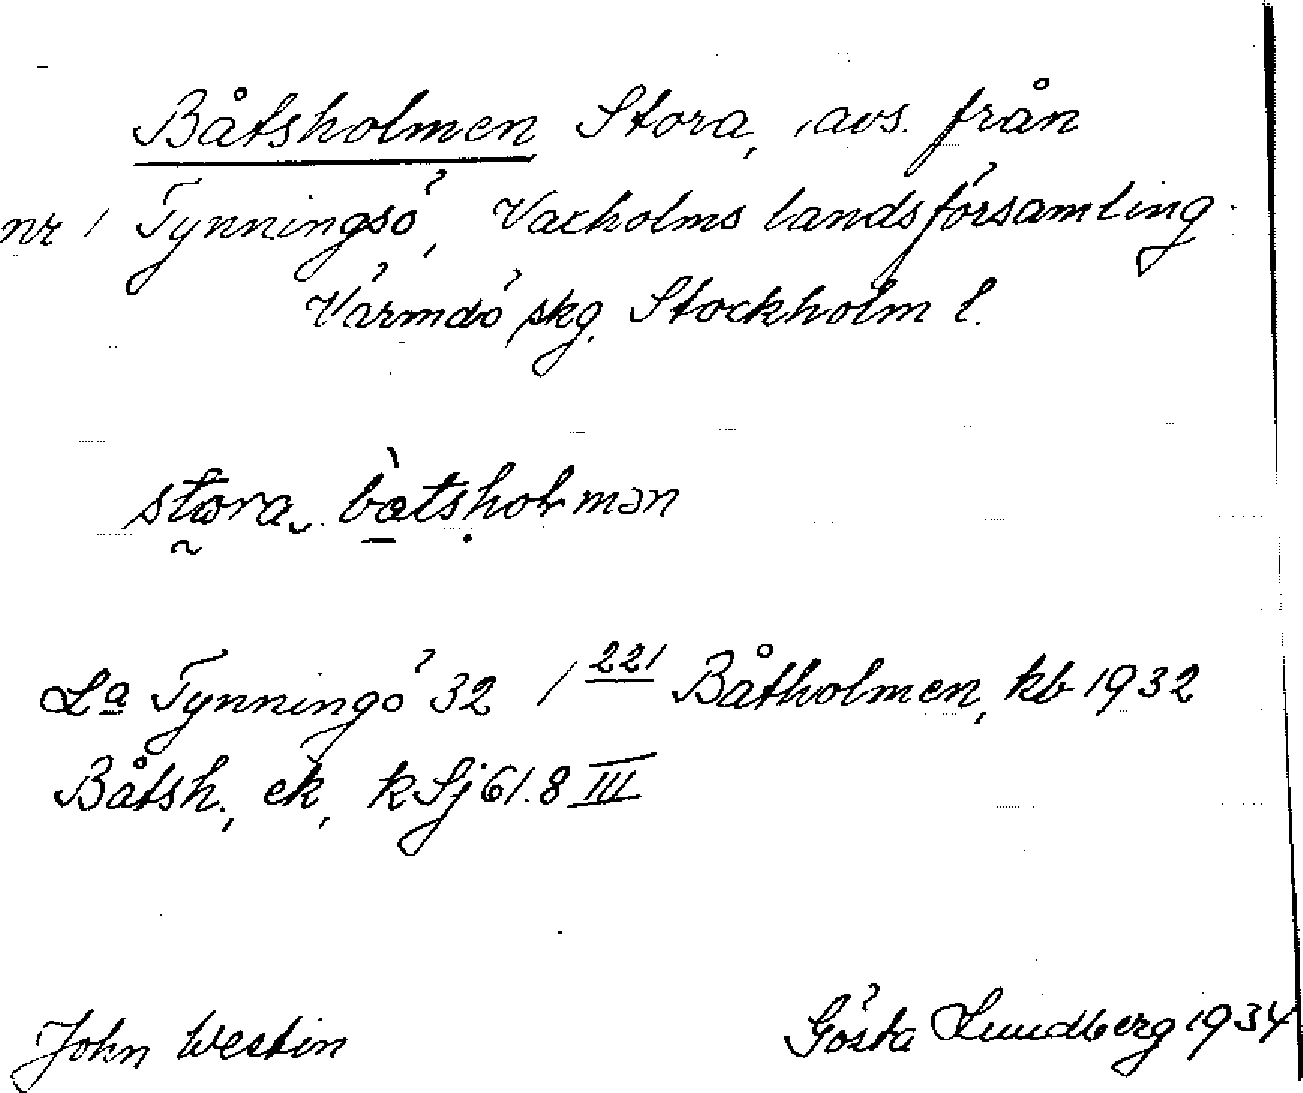 Båtsholmen Stora, avs. från
nr 1 Tynningsö, Vaxholms landsförsamling.
Värmdö skg. Stockholm l.
stora båtsholmən
La Tynningö 32 / 221 Båtholmen, kb 1932
Båtsh., ek, k Sj 61.8 III
John Westin
Gösta Lundberg 1934